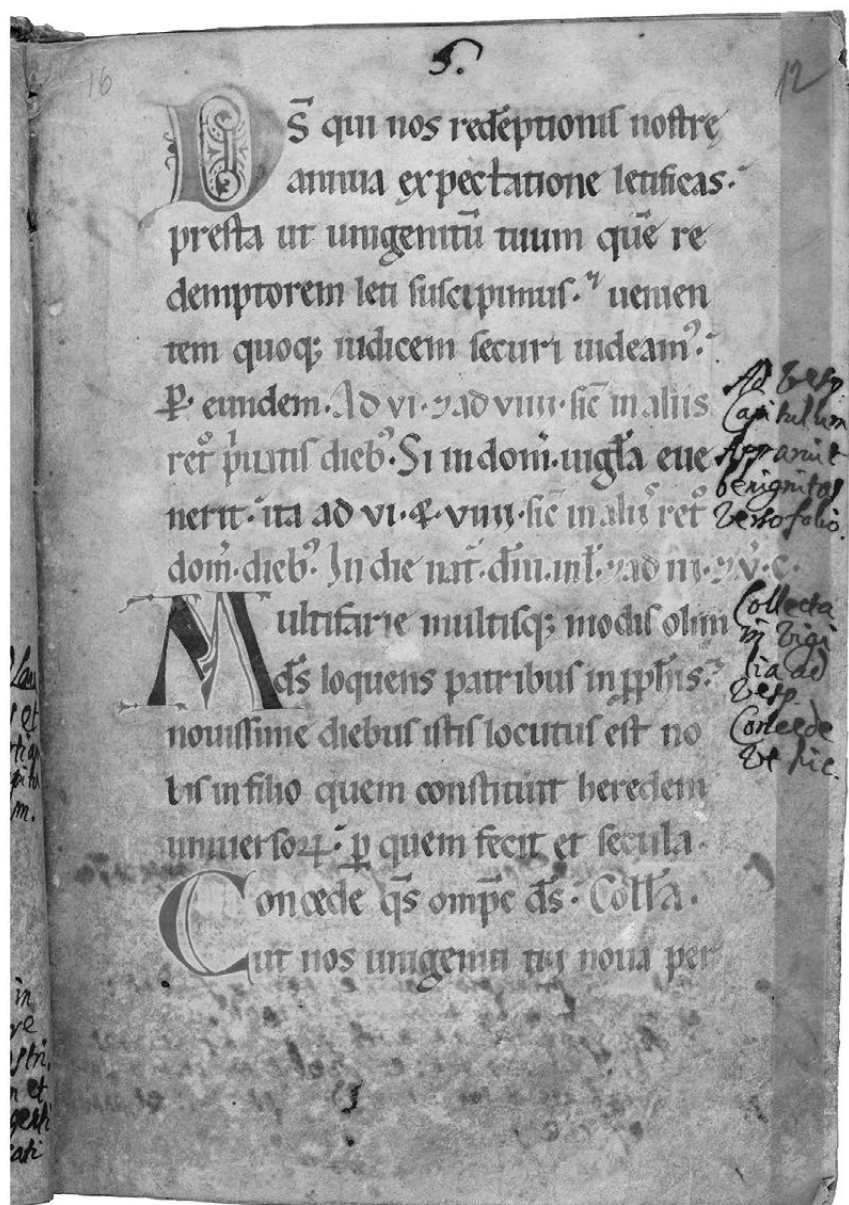 5.
16
12
D̄S qui nos redēptionis nostrę
annua expectatione letificas.
presta ut unigenitū tuum quē re
demptorem leti suscipimus. uenien
tem quoq; iudicem securi uideam᾿.
P. eundem. Ad vi. ⁊ ad viiii. sic̄ in aliis
ret᾿ p̓uatis dieb᾿. Si in dom̄. uigl̄a eue
nerit. ita ad vi. & viiii. sic̄ in aliis ret᾿
dom̄. dieb᾿. In die nat̄. dn̄i. inl̄. ⁊ ad iii. ⁊ v̄. c.
Multifarie multisq; modis olim
d̄s loquens patribus in ꝓph̄is.
nouissime diebus istis locutus est no
bis in filio quem constituit heredem
uniuersoꝝ. ꝑ quem fecit et secula.
Concede q̄s omp̄c d̄s. Coll̄a.
ut nos unigeniti tui noua per
Ad vesp.
Capitulum
Apparuit
benignitas
verso folio.
Collecta
in vigi
lia ad
vesp.
Concede
vt hic.
et
m.
in
re
stri.
et